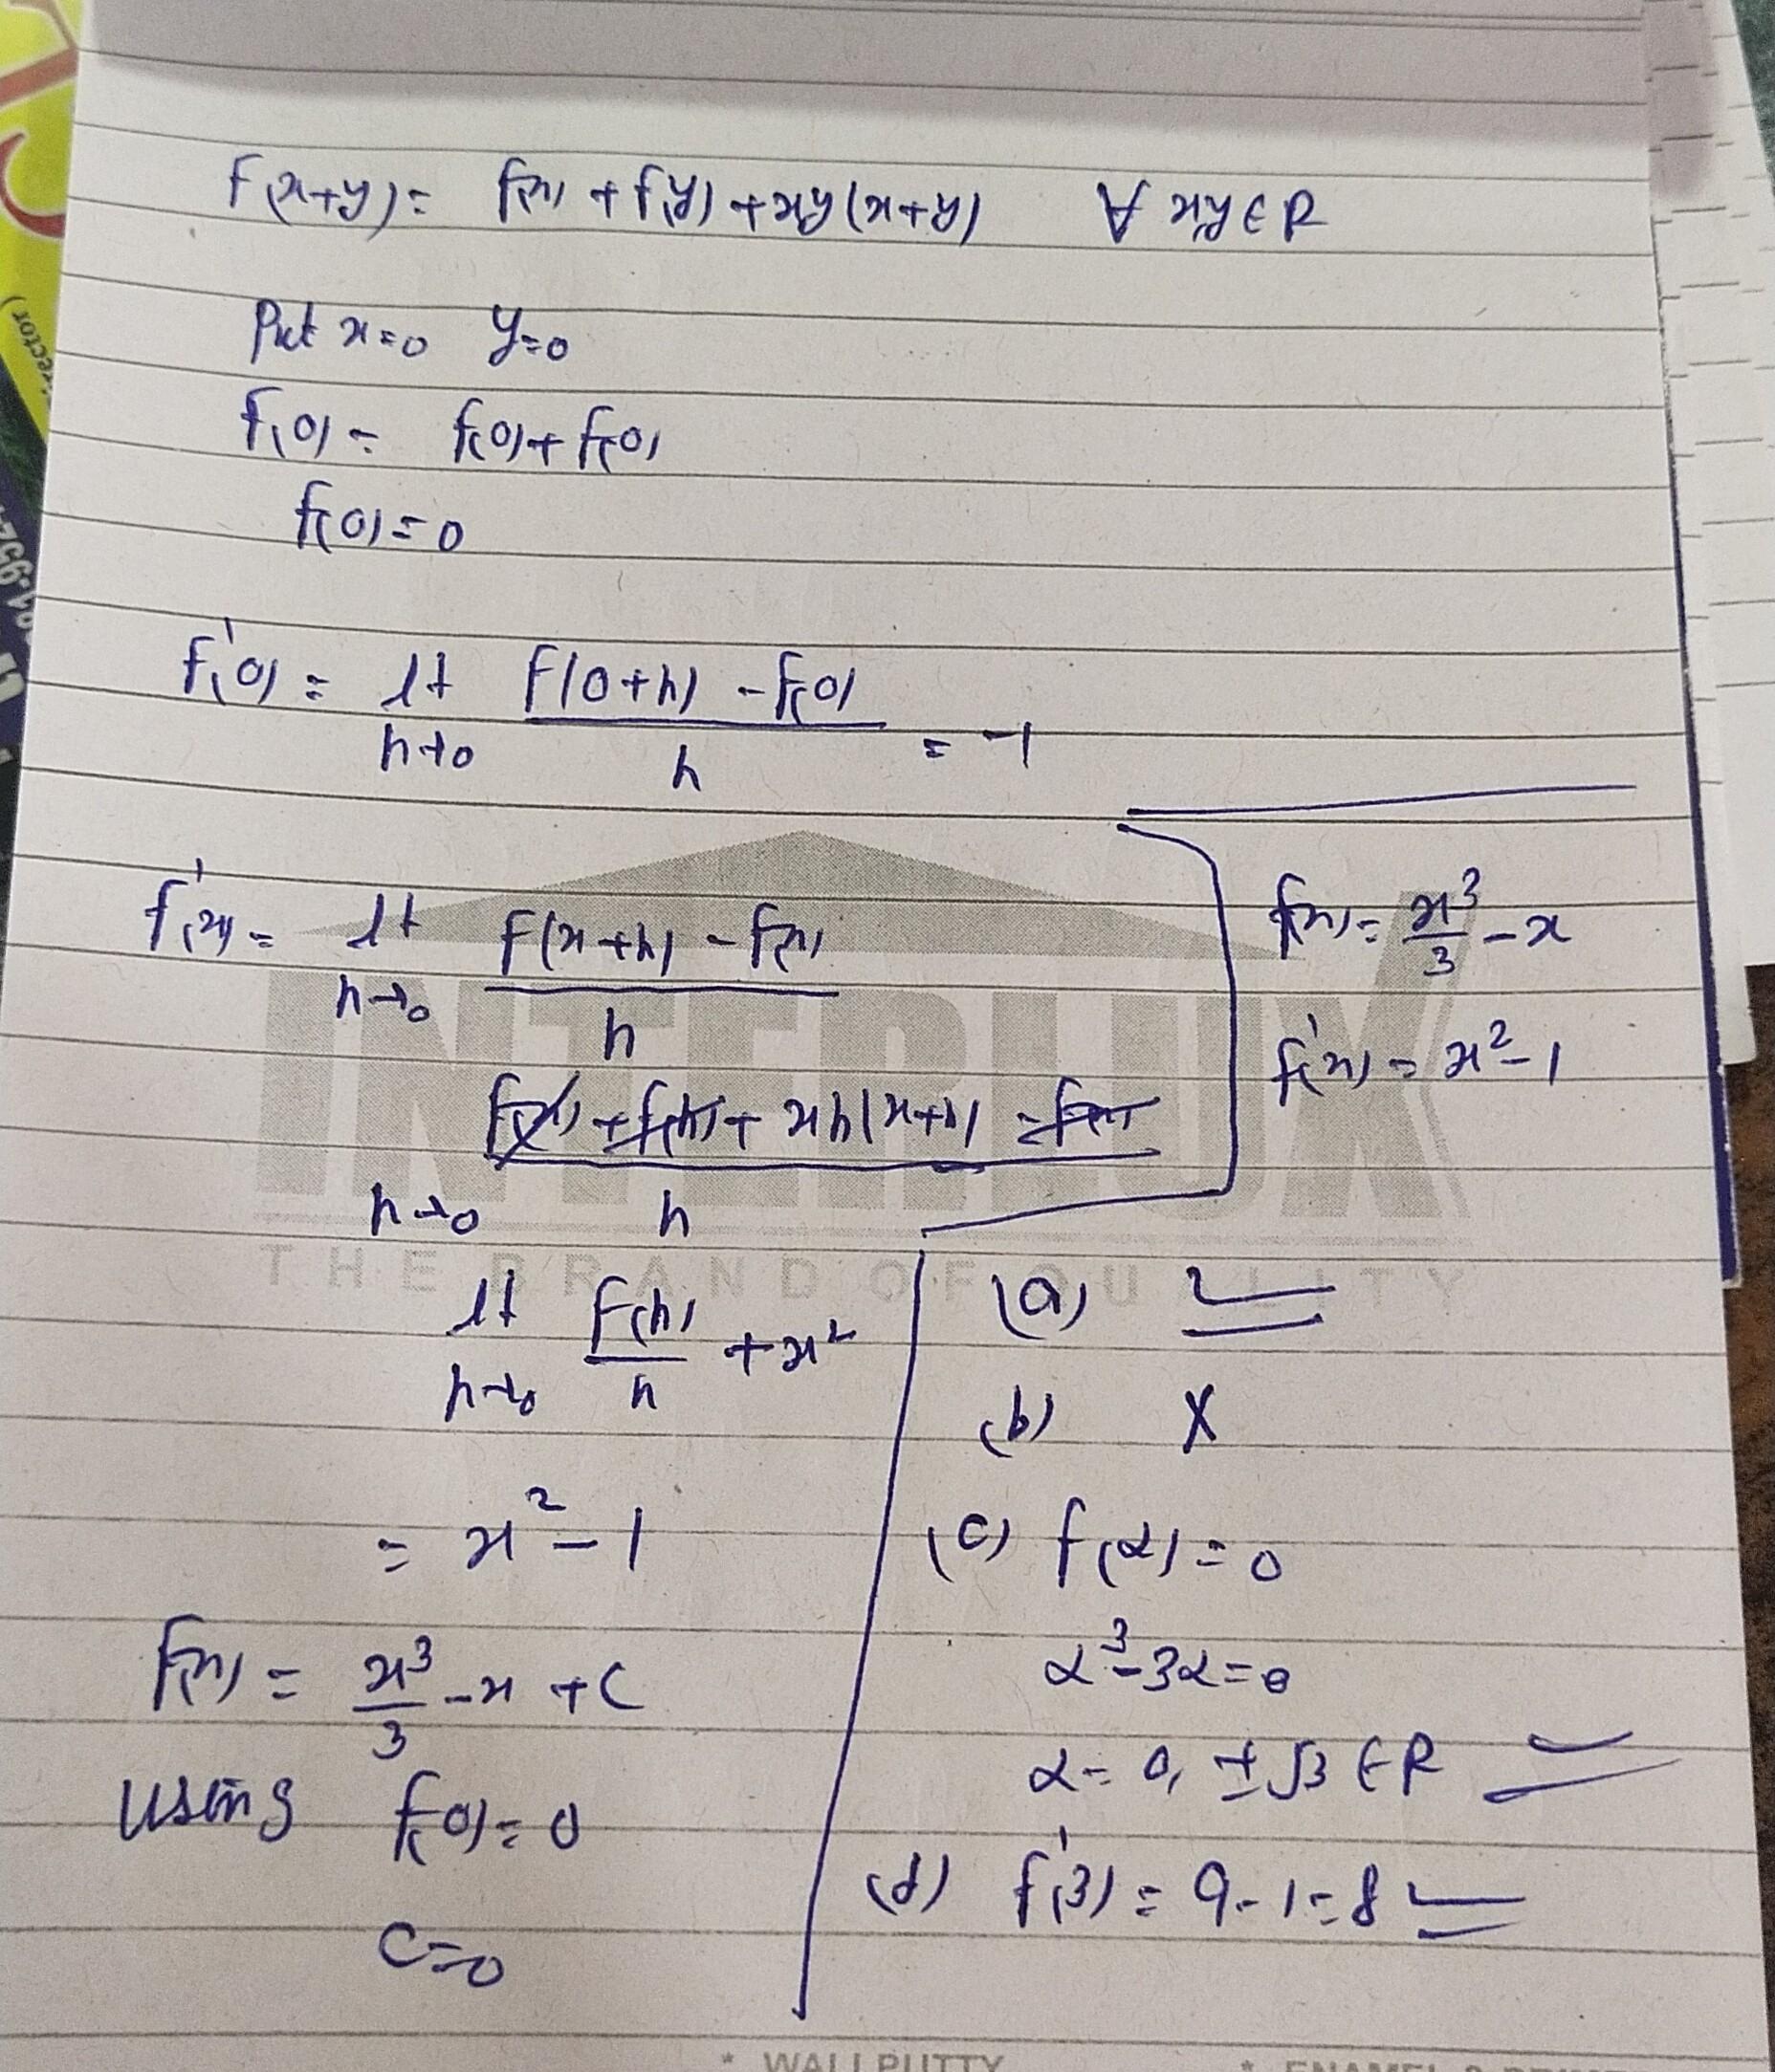 f(x+y) = f(x) + f(y) + xy(x+y) ∀ x,y ∈ R
Put x=0 y=0
f(0) = f(0) + f(0)
f(0) = 0
f'(0) = lt h→0 (f(0+h) - f(0))/h = -1
f'(x) = lt h→0 (f(x+h) - f(x))/h
h→0 (f(x) + f(h) + xh(x+h) - f(x))/h
lt h→0 f(h)/h + x²
= x² - 1
f(x) = x³/3 - x + C
Using f(0) = 0
C=0
f(x) = x³/3 - x
f'(x) = x² - 1
(a)
(b) X
(c) f(α) = 0
α³ - 3α = 0
α = 0, ±√3 ∈ R
(d) f'(3) = 9-1=8
INTERLUX
THE BRAND OF QUALITY
* WALL PUTTY